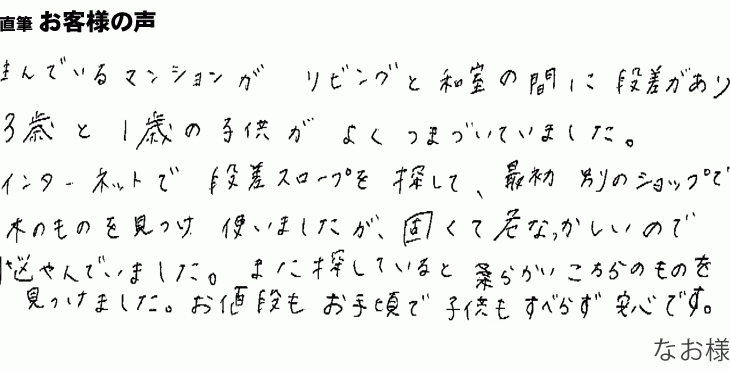 直筆 お客様の声
住んでいるマンションが リビングと和室の間に 段差があり
3歳と1歳の子供が よくつまづいていました。
インターネットで 段差スロープを 探して、最初 別のショップで
木のものを見つけ 使いましたが、固くて危なっかしいので
悩やんでいました。また探していると 柔らかいこちらのものを
見つけました。お値段も お手頃で 子供もすべらず 安心です。
なお様